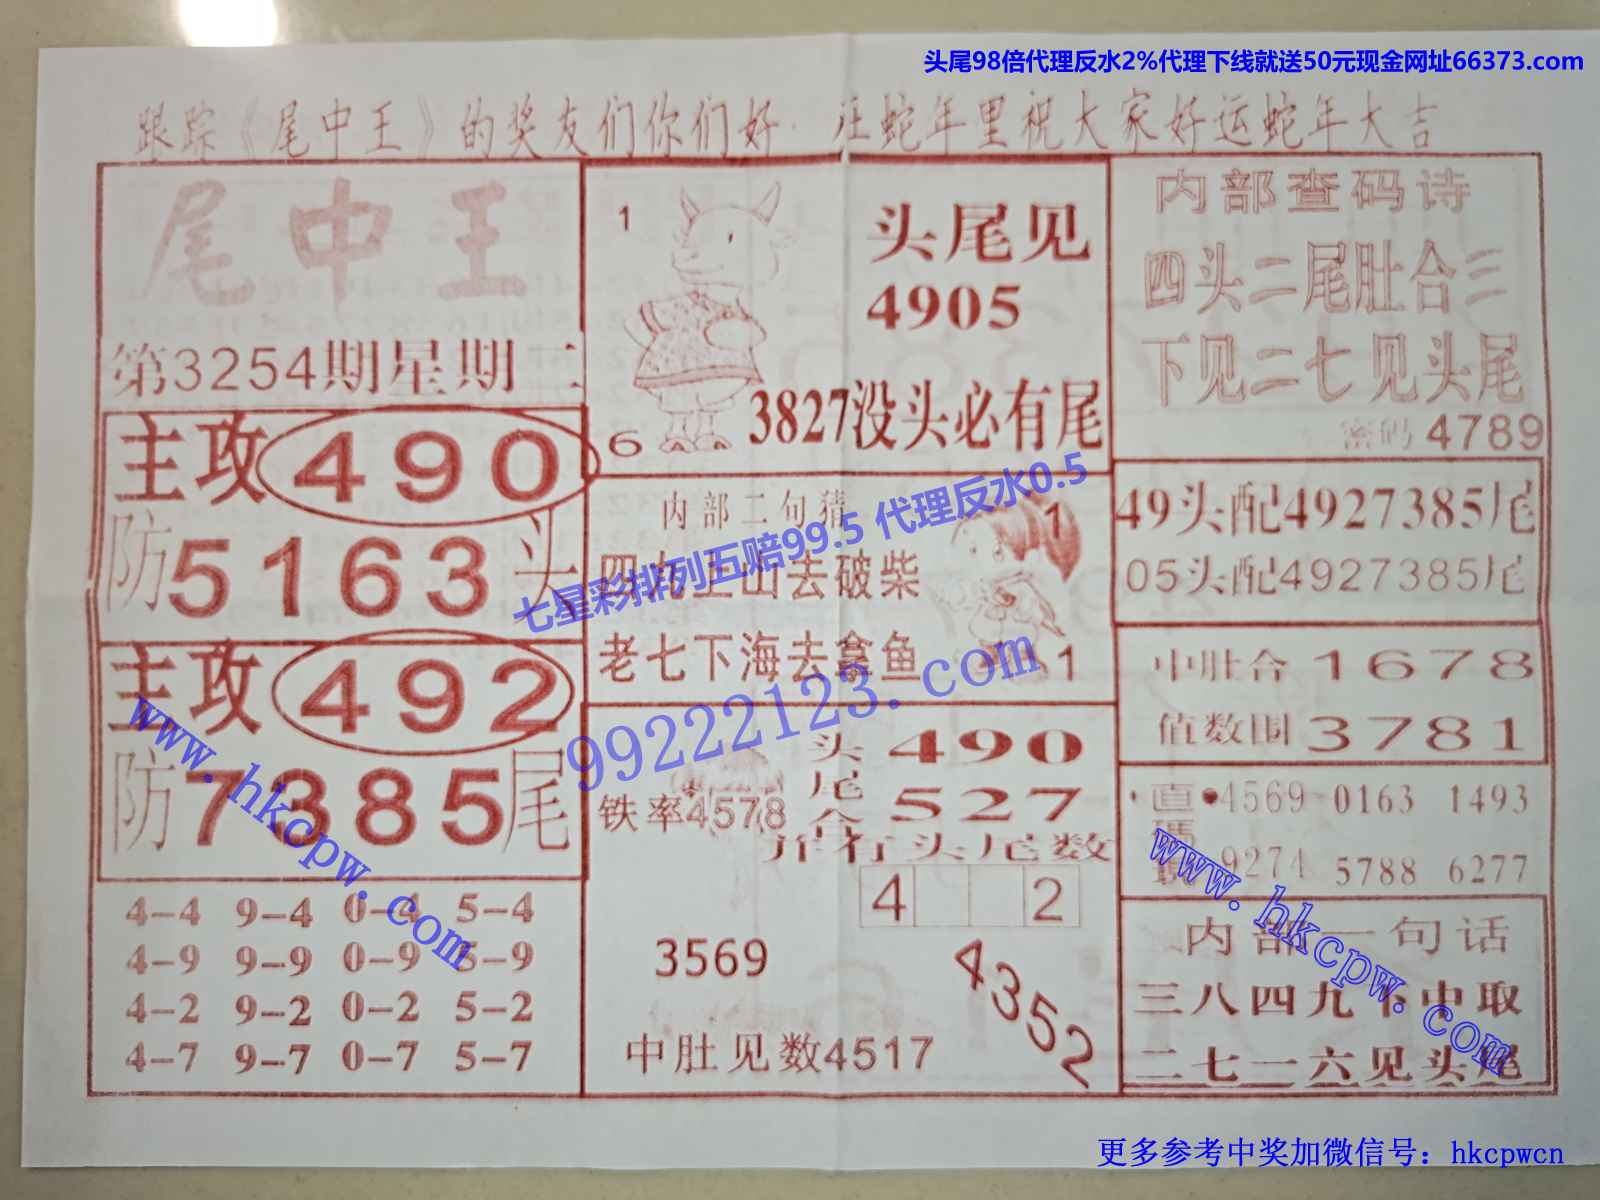 头尾98倍代理反水2%代理下线就送50元现金网址66373.com
跟踪《尾中王》的奖友们你们好 在蛇年里祝大家好运蛇年大吉
尾中王
第3254期星期二
主攻490
防5163头
主攻492
防7385尾
4-4 9-4 0-4 5-4
4-9 9-9 0-9 5-9
4-2 9-2 0-2 5-2
4-7 9-7 0-7 5-7
1
头尾见
4905
6
3827没头必有尾
内部二句猜
四九上山去破柴
老七下海去拿鱼
1
1
七星彩排列五赔99.5 代理反水0.5
99222123.com
头490
尾527
合
铁率4578
开行头尾数
4 2
3569
4352
中肚见数4517
内部查码诗
四头二尾肚合三
下见二七见头尾
密码4789
49头配4927385尾
05头配4927385尾
中肚合1678
值数围3781
直码 4569 0163 1493
9274 5788 6277
内部一句话
三八四九下中取
二七一六见头尾
www.hkcpw.com
www.hkcpw.com
更多参考中奖加微信号：hkcpwcn